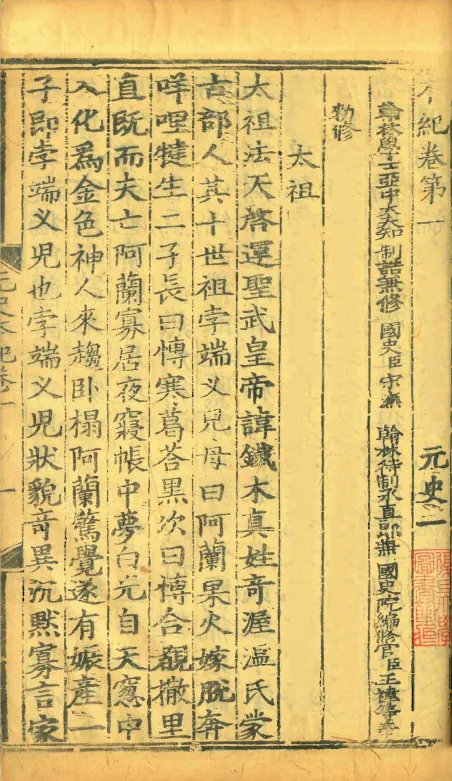 本紀卷第一 元史一
翰林學士亞中大夫知 制誥兼修 國史臣宋濂 翰林待制承直郎兼 國史院編修官臣王禕等奉
勑修
太祖
太祖法天啓運聖武皇帝諱鐵木真姓竒渥溫氏蒙
古部人其十世祖孛端义兒母曰阿蘭果火嫁脫奔
咩哩犍生二子長曰慱寒葛荅黑次曰慱合覩撒里
直旣而夫亡阿蘭寡居夜寢帳中夢白光自天窻中
入化爲金色神人來趨卧榻阿蘭驚覺遂有娠產一
子即孛端义兒也孛端义兒狀貌竒異沉默寡言家
元史本紀卷一 一